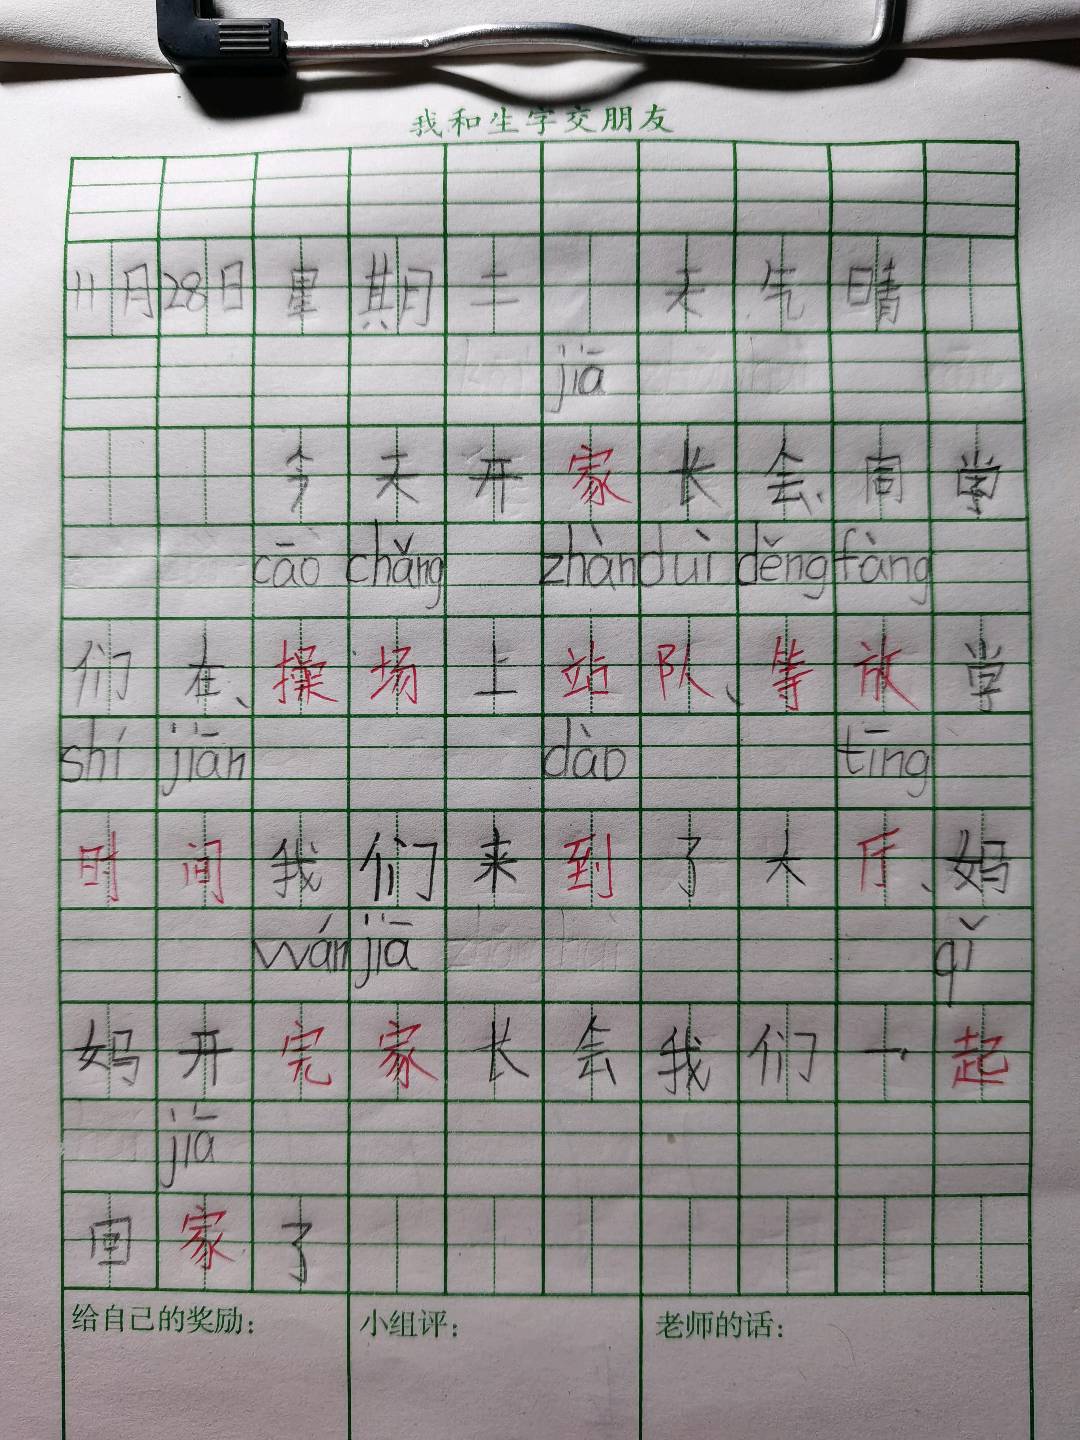 我和生字交朋友
11月28日星期二 天气晴
jiā
今天开家长会、同学
cāo chǎng zhàn duì děng fàng
们在、操场上站队、等放学
shí jiān dào tīng
时间我们来到了大厅、妈
wán jiā qǐ
妈开完家长会我们一起
jiā
回家了
给自己的奖励： 小组评： 老师的话：